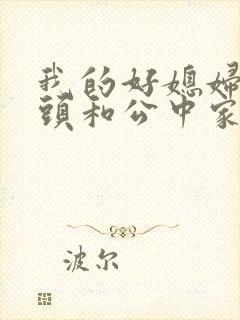 我的好媳婦
頭和公中家
波尔